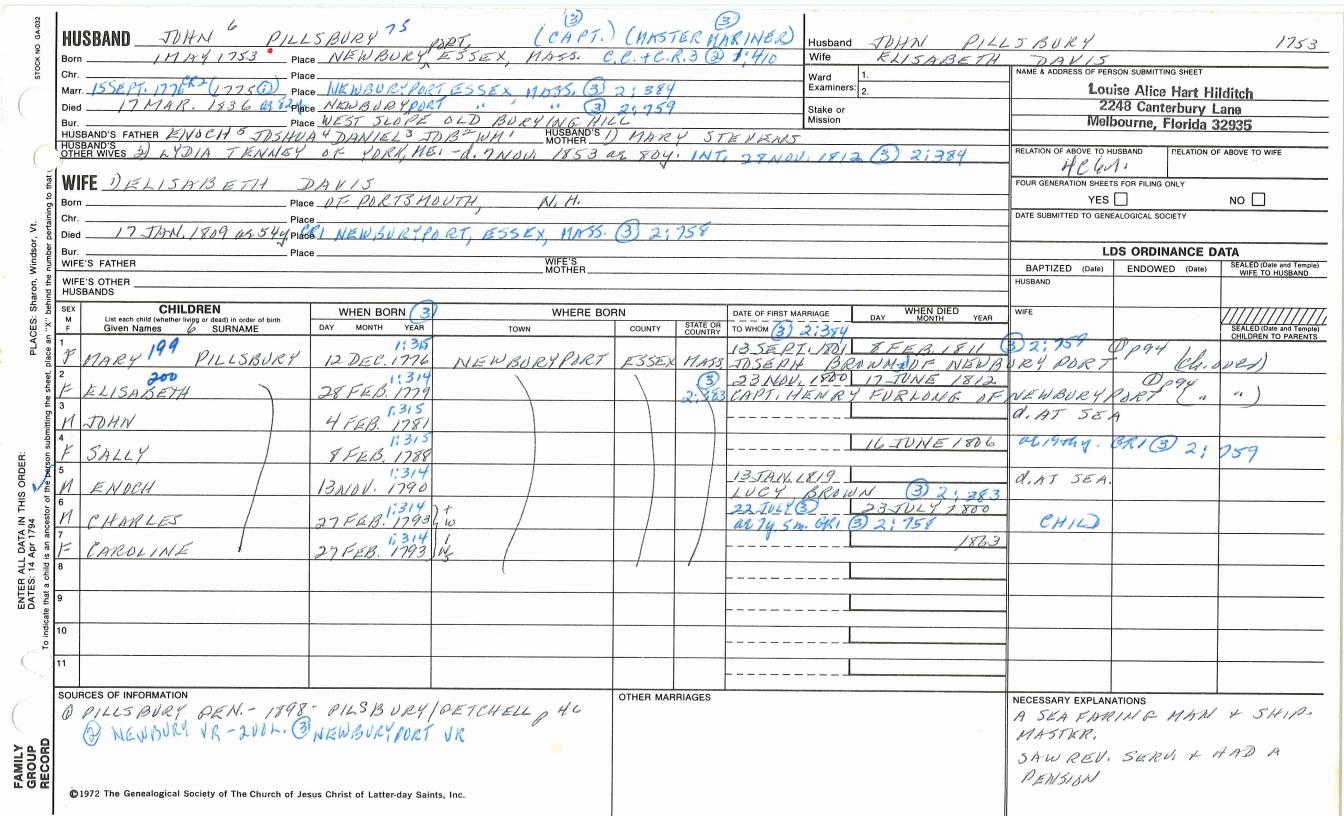 STOCK NO. GA-032
HUSBAND JOHN 6 PILLSBURY 75 (3) (CAPT.) (3) (MASTER MARINER)
Born 1 MAY 1753 Place NEWBURYPORT, ESSEX, MASS. C.C. + C.R.3 (2) 1;410
Chr. Place
Marr. 15 SEPT. 1776 CR2 (1775 (1)) Place NEWBURYPORT ESSEX MASS. (3) 2;384
Died 17 MAR. 1836 Place NEWBURYPORT " " (3) 2;759
Bur. Place WEST SLOPE OLD BURYING HILL
HUSBAND'S FATHER ENOCH 5 JOSHUA 4 DANIEL 3 JOB 2 WM 1 HUSBAND'S MOTHER 1) MARY STEVENS
HUSBAND'S OTHER WIVES 2) LYDIA TENNEY OF YORK, ME. - d. 7 NOV 1853 ae 80y. INT. 28 NOV. 1812 (3) 2;384
WIFE 1) ELISABETH DAVIS
Born Place OF PORTSMOUTH, N.H.
Chr. Place
Died 17 JAN. 1809 ae 54y Place GR1 NEWBURYPORT, ESSEX, MASS. (3) 2;758
Bur. Place
WIFE'S FATHER WIFE'S MOTHER
WIFE'S OTHER HUSBANDS
Husband JOHN PILLSBURY 1753
Wife ELISABETH DAVIS
Ward Examiners: 1. 2.
Stake or Mission
NAME & ADDRESS OF PERSON SUBMITTING SHEET
Louise Alice Hart Hilditch
2248 Canterbury Lane
Melbourne, Florida 32935
RELATION OF ABOVE TO HUSBAND RELATION OF ABOVE TO WIFE
FOUR GENERATION SHEETS FOR FILING ONLY
YES NO
DATE SUBMITTED TO GENEALOGICAL SOCIETY
LDS ORDINANCE DATA
BAPTIZED (Date) ENDOWED (Date) SEALED (Date and Temple) WIFE TO HUSBAND
HUSBAND
WIFE
SEALED (Date and Temple) CHILDREN TO PARENTS
SEX M F CHILDREN List each child (whether living or dead) in order of birth Given Names 6 SURNAME
WHEN BORN (3) DAY MONTH YEAR
WHERE BORN TOWN COUNTY STATE OR COUNTRY
DATE OF FIRST MARRIAGE TO WHOM (3) 2;384
WHEN DIED DAY MONTH YEAR
1 F MARY 199 PILLSBURY 1;315 12 DEC. 1776 NEWBURYPORT ESSEX MASS. 13 SEPT. 1801 8 FEB. 1811 (3) 2;759 (1) p94
JOSEPH BROWN OF NEWBURYPORT (ch. 2 ved)
2 F ELISABETH 200 1;314 28 FEB. 1779 (3) 2;383 23 NOV. 1800 17 JUNE 1812 (1) p94
CAPT. HENRY FURLONG OF NEWBURYPORT ( " " )
3 M JOHN 1;315 4 FEB. 1781 d. AT SEA
4 F SALLY 1;315 8 FEB. 1788 16 JUNE 1806 ae 19thy. GR1 (3) 2;759
5 M ENOCH 1;314 13 NOV. 1790 13 JAN. 1819 d. AT SEA.
LUCY BROWN (3) 2;383
6 M CHARLES 1;314 27 FEB. 1793 22 JULY (3) 23 JULY 1800
ae 7y 5m. GR1 (3) 2;758 CHILD
7 F CAROLINE 1;314 27 FEB. 1793 1863
TWINS
8
9
10
11
SOURCES OF INFORMATION
(1) PILLSBURY GEN. - 1898 - PILSBURY/GETCHELL p 46
(2) NEWBURY VR - 2 VOL. (3) NEWBURYPORT VR
OTHER MARRIAGES
NECESSARY EXPLANATIONS
A SEA FARING MAN + SHIP-
MASTER.
SAW REV. SERV. + HAD A
PENSION
©1972 The Genealogical Society of The Church of Jesus Christ of Latter-day Saints, Inc.
FAMILY GROUP RECORD
ENTER ALL DATA IN THIS ORDER:
DATES: 14 Apr 1794 PLACES: Sharon, Windsor, Vt.
To indicate that a child is an ancestor of the person submitting the sheet, place an "X" behind the number pertaining to that